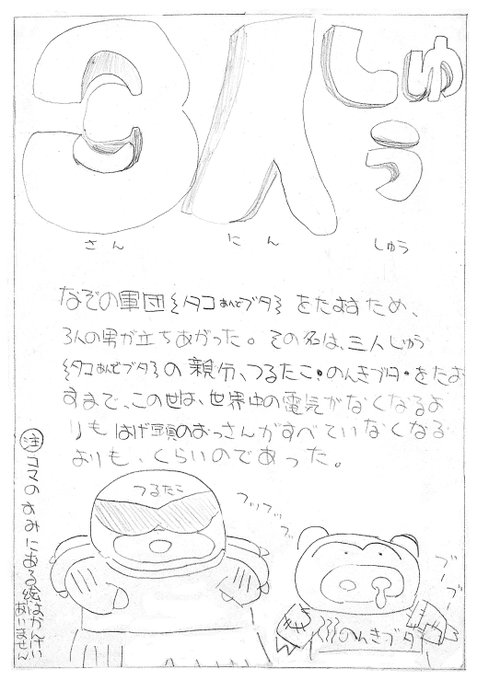 3人しゅう
さん にん しゅう
なぞの軍団ミタコあんどブタミをたおすため、
3人の男が立ちあがった。その名は、三人しゅう
ミタコあんどブタミの親分、つるたこ・のんきブタ・をたお
すまで、この世は、世界中の電気がなくなるよ
りもはげ頭のおっさんがすべていなくなる
よりも、くらいのであった。
注 コマのすみにある絵はかんけい
ありません
つるたこ
フッフッフ
ブーブー
のんきブタ